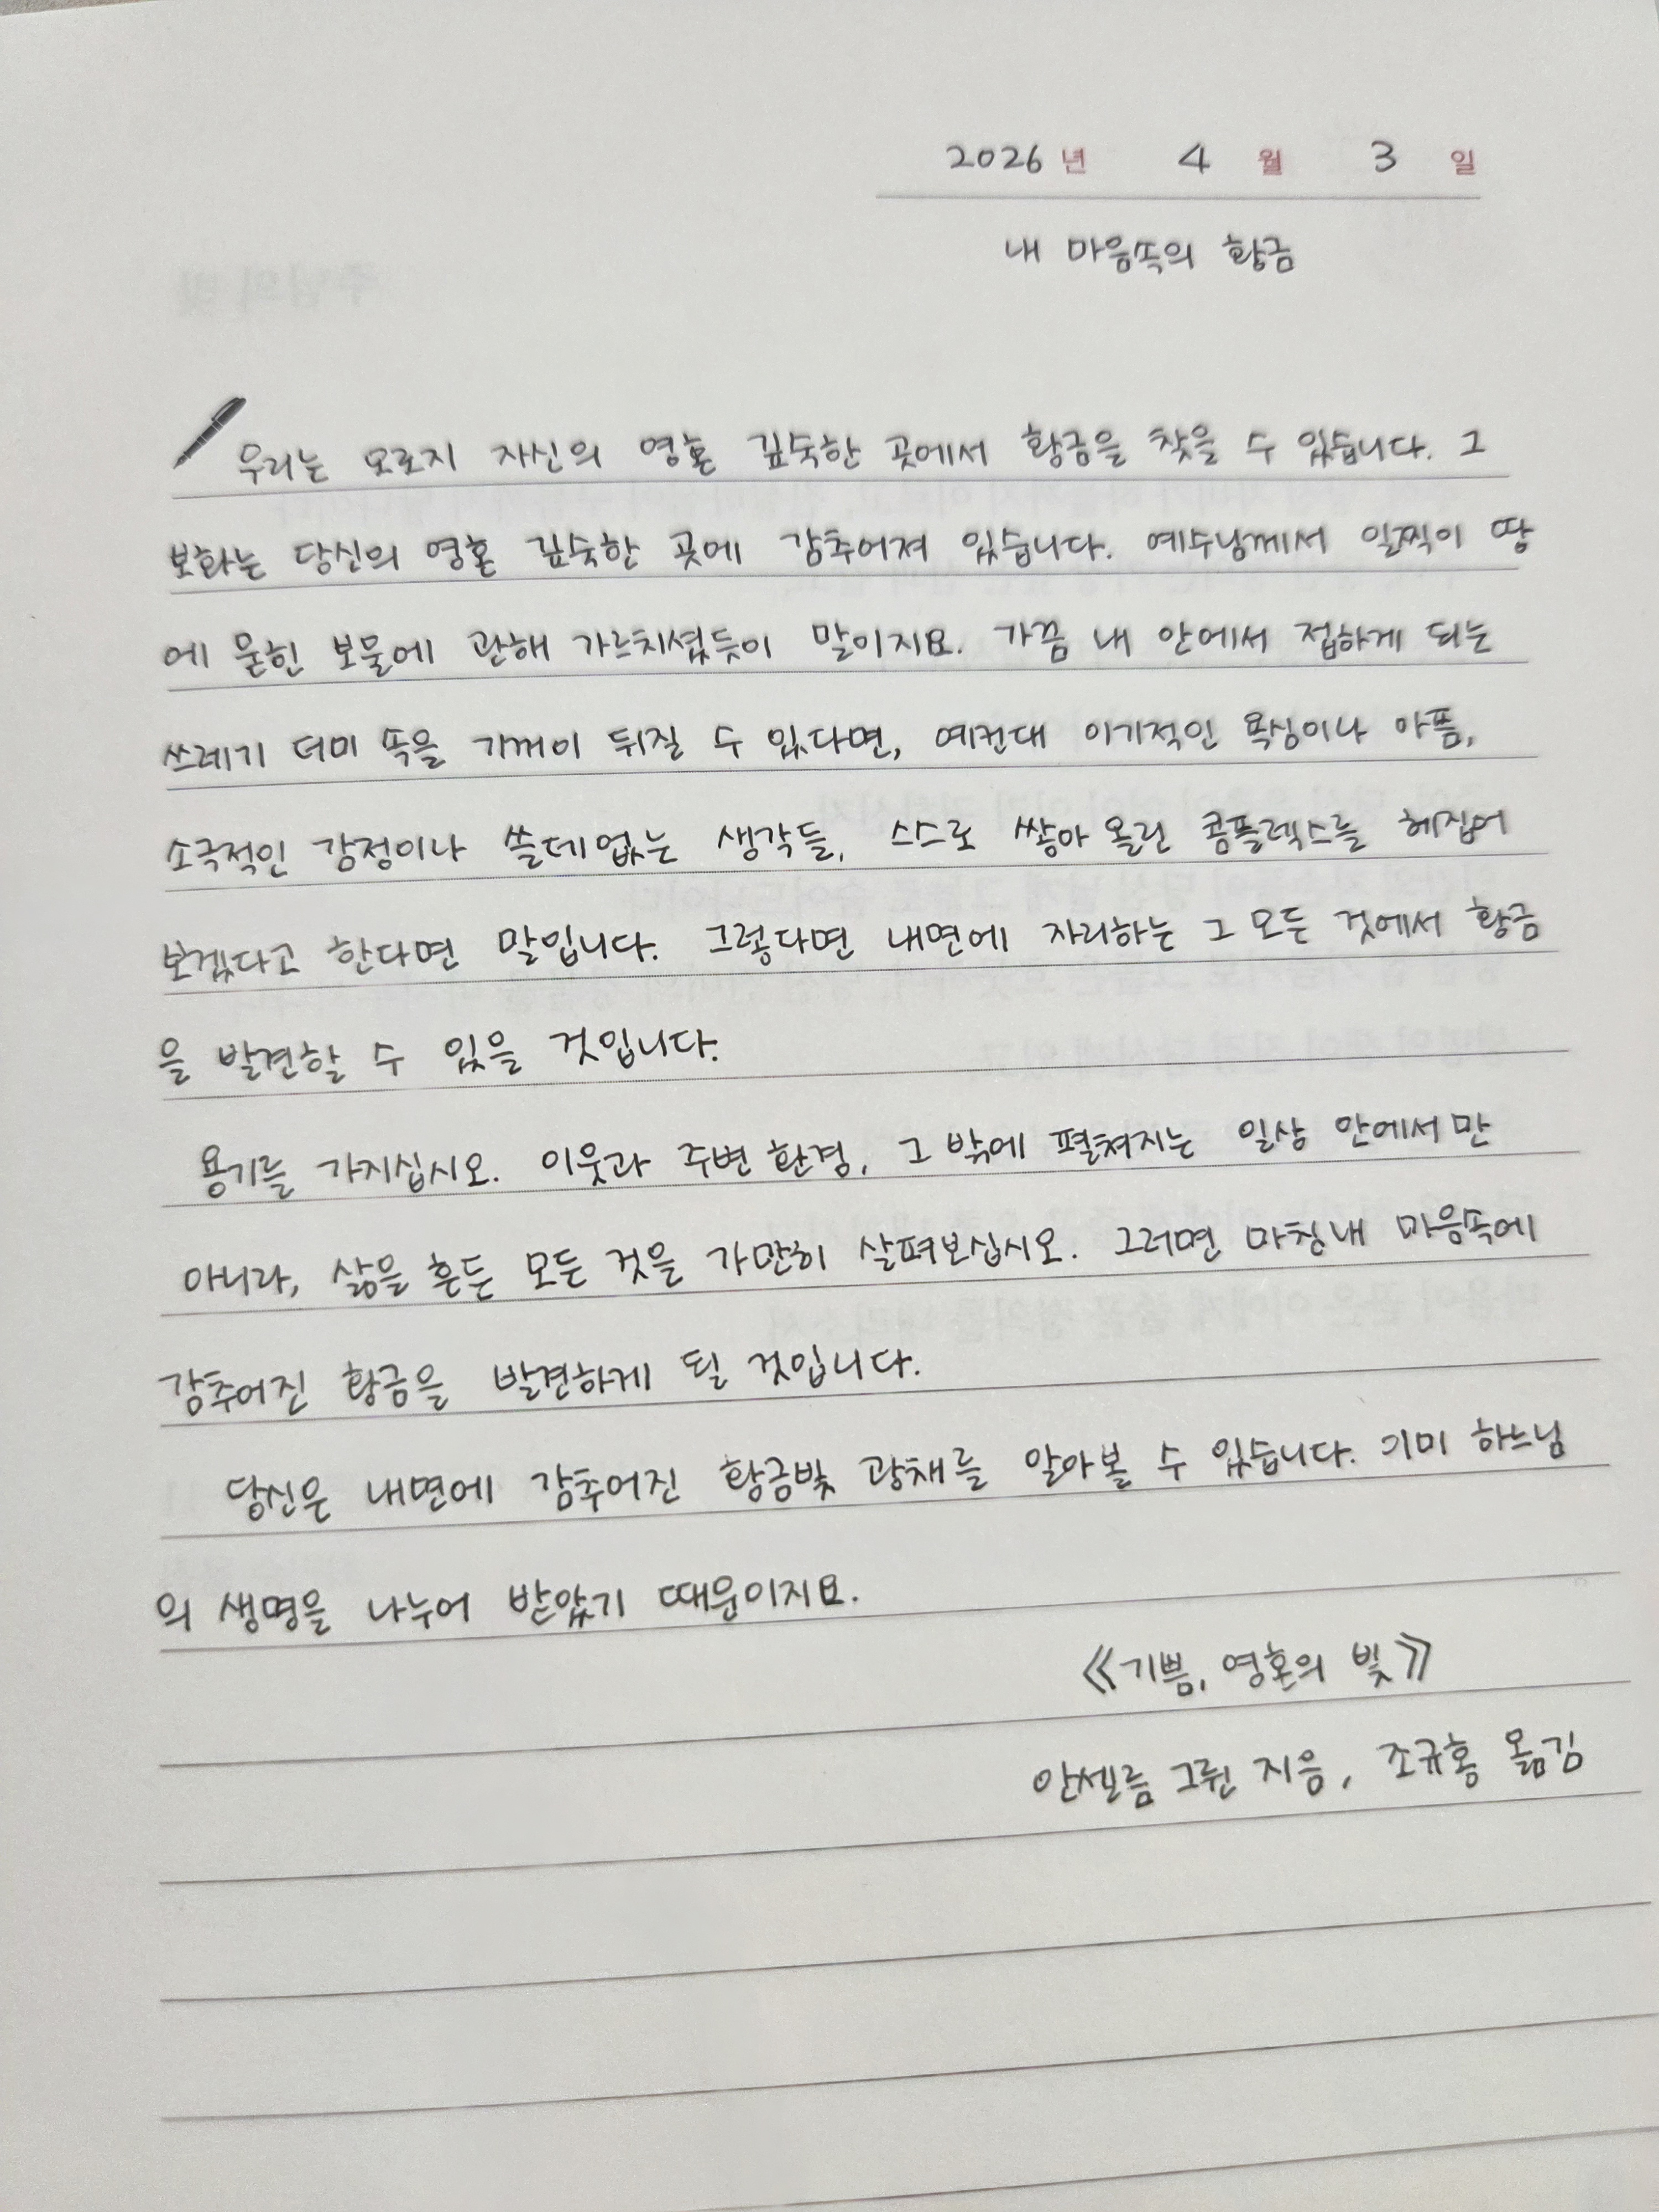 2026년 4월 3일
내 마음속의 황금
우리는 오로지 자신의 영혼 깊숙한 곳에서 황금을 찾을 수 있습니다. 그
보화는 당신의 영혼 깊숙한 곳에 감추어져 있습니다. 예수님께서 일찍이 땅
에 묻힌 보물에 관해 가르치셨듯이 말이지요. 가끔 내 안에서 접하게 되는
쓰레기 더미 속을 기꺼이 뒤질 수 있다면, 예컨대 이기적인 욕심이나 아픔,
소극적인 감정이나 쓸데없는 생각들, 스스로 쌓아 올린 콤플렉스를 헤집어
보겠다고 한다면 말입니다. 그렇다면 내면에 자리하는 그 모든 것에서 황금
을 발견할 수 있을 것입니다.
용기를 가지십시오. 이웃과 주변 환경, 그 밖에 펼쳐지는 일상 안에서만
아니라, 삶을 흔든 모든 것을 가만히 살펴보십시오. 그러면 마침내 마음속에
감추어진 황금을 발견하게 될 것입니다.
당신은 내면에 감추어진 황금빛 광채를 알아볼 수 있습니다. 기미 하느님
의 생명을 나누어 받았기 때문이지요.
《기쁨, 영혼의 빛》
안셀름 그륀 지음, 조규홍 옮김